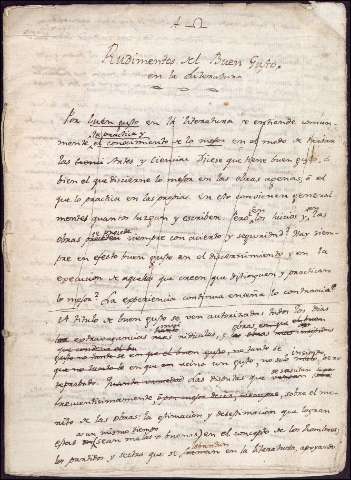 A Ω
Rudimentos del Buen Gusto.
en la Literatura
Por buen gusto en la literatura se entiende comun-
la practica y
mente el conocimiento de lo mejor en el modo de tratar
las Artes y Ciencias. Dicese que tiene buen gusto, o
bien el que discierne lo mejor en las obras agenas, ó el
que lo practica en las propias. en esto convienen general
mente quantos juzgan y escriben. Pero los juicios y las
obras siempre con acierto y seguridad? Hay siem-
pre en efecto buen gusto en el discernimiento y en la
execucion de aquellos que creen que distinguen y practican
lo mejor? La experiencia continua enseña lo contrario.
A titulo de buen gusto se ven autorizadas todos los dias
extravagancias mas ridiculas, y las obras
gusto no tanto se en que el buen gusto, no tanto se
que no tanto en que en reino un gusto, no solo malo, sino
estragado. las disputas que se suscitan
frecuentisimamente, sobre el me-
rito de las obras: la estimacion y desestimacion que logran
a un mismo tiempo
estas (sean malas o buenas) en el concepto de los hombres;
los partidos, y sectas que se forman en la literatura, apoyando